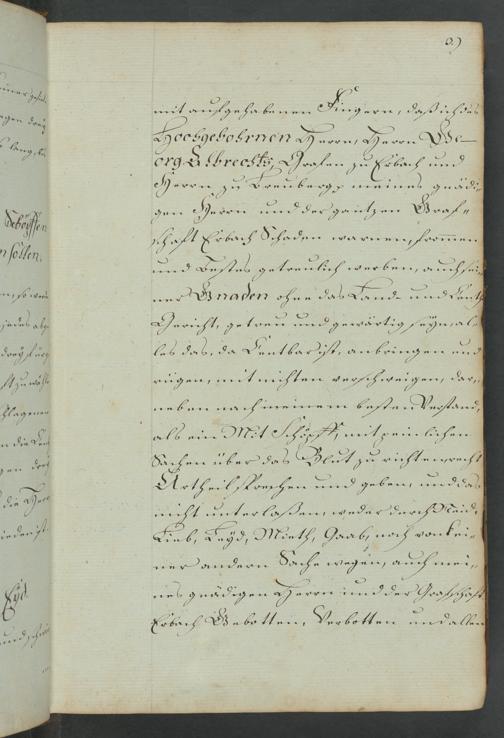 mit aufgehabenen Fingern, daß ich des
Hochgebohrnen Herrn, Herrn Ge-
org Albrechts, Grafen zu Erbach und
Herrn zu Breuberg meines gnädi-
gen Herrn und der gantzen Graf-
schaft Erbach Schaden warnen, frommen
und Bestes getreulich werben, auch sei-
ner Gnaden ohne das Land- und Cent
Gericht, getreu und gewärtig seyn, al-
les das, da Centbar ist, anbringen und
rügen, mit nichten verschweigen, dar-
neben nach meinem besten Verstand,
als ein Mit Schöpff, mit peinlichen
Sachen über das Blut zu richten, recht
Urtheil sprechen und geben, und das
nicht unterlaßen, weder durch Neid,
Lieb, Leyd, Mieth, Gaab, noch von kei-
ner andern Sache wegen, auch mei-
nes gnädigen Herrn und der Grafschaft
Erbach Gebotten, Verbotten und allen
Schöpffen
n sollen.
Eyd